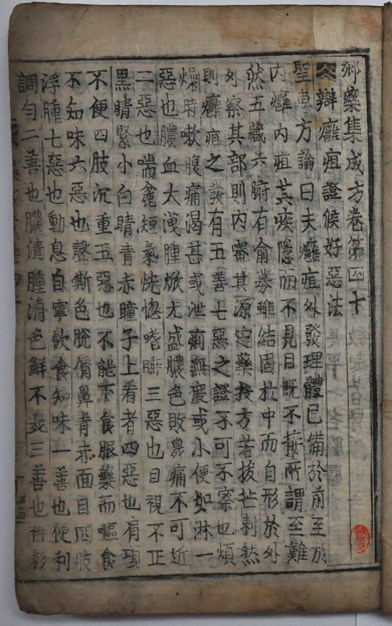 鄕藥集成方卷第四十
辯癰疽證候好惡法
聖惠方論曰夫癰疽外發理體已備於前至於
內癰內疽其疾隱而不見目既不接所謂至難
然五藏六腑有俞募雖結固於中而自形於外
外察其部則內審其源定藥投方若拔芒刺然
則癰疽之發有五善七惡之證不可不察也煩
燥時嗽腹痛渴甚或泄痢無度或小便如淋一
惡也膿血大洩腫焮尤盛膿色敗鼻痛不可近
二惡也喘麁短氣恍惚嗜睡三惡也目視不正
黑睛緊小白睛青赤瞳子上看者四惡也
不便四肢沉重五惡也不能下食服藥而嘔食
不知味六惡也聲嘶色脫脣鼻青赤面目四肢
浮腫七惡也動息自寧飲食知味一善也便利
調勻二善也膿潰腫消色鮮不臭三善也